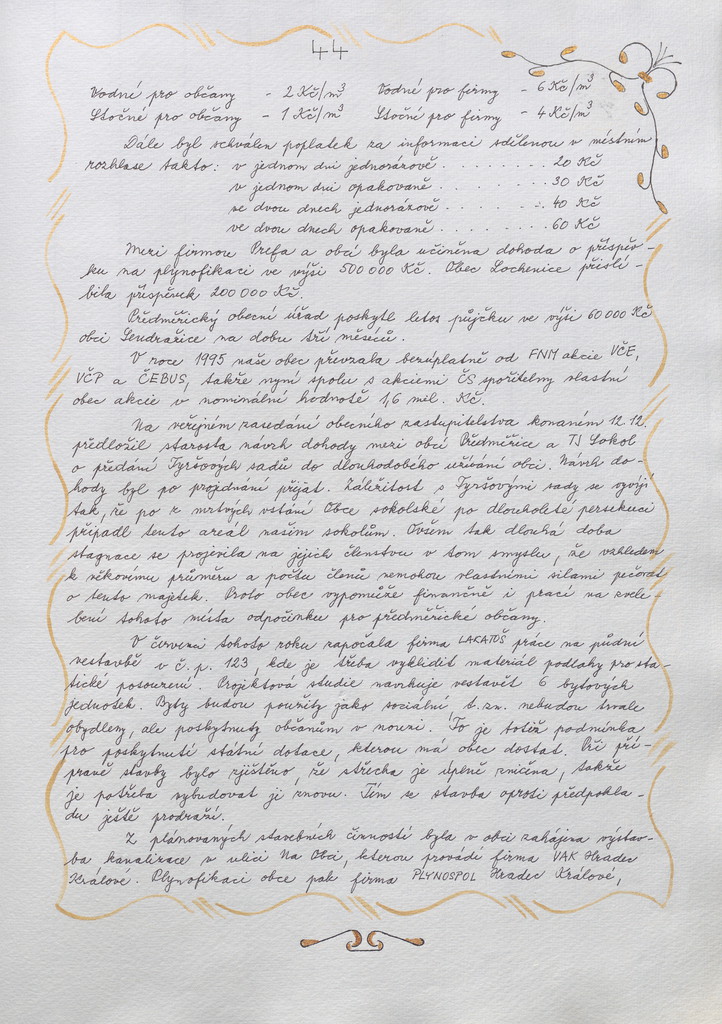 44
Vodné pro občany - 2 Kč/m³ Vodné pro firmy - 6 Kč/m³
Stočné pro občany - 1 Kč/m³ Stočné pro firmy - 4 Kč/m³
Dále byl schválen poplatek za informaci sdělenou v místním
rozhlase takto: v jednom dni jednorázově . . . . . . . . . . 20 Kč
v jednom dni opakovaně . . . . . . . . . . 30 Kč
ve dvou dnech jednorázově . . . . . . . . 40 Kč
ve dvou dnech opakovaně . . . . . . . . . 60 Kč
Mezi firmou Prefa a obcí byla učiněna dohoda o příspěv-
ku na plynofikaci ve výši 500 000 Kč. Obec Lochenice příslí-
bila příspěvek 200 000 Kč.
Předměřický obecní úřad poskytl letos půjčku ve výši 60 000 Kč
obci Sendražice na dobu tří měsíců.
V roce 1995 naše obec převzala bezúplatně od FNM akcie VČE,
VČP a ČEBUS, takže nyní spolu s akciemi ČS spořitelny vlastní
obec akcie v nominální hodnotě 1,6 mil. Kč.
Na veřejném zasedání obecního zastupitelstva konaném 12.12.
předložil starosta návrh dohody mezi obcí Předměřice a TJ Sokol
o předání Tyršových sadů do dlouhodobého užívání obci. Návrh do-
hody byl po projednání přijat. Záležitost s Tyršovými sady se vyvíjí
tak, že po z mrtvých vstání Obce sokolské po dlouholeté persekuci
připadl tento areál našim sokolům. Ovšem tak dlouhá doba
stagnace se projevila na jejich členstvu v tom smyslu, že vzhledem
k věkovému průměru a počtu členů nemohou vlastními silami pečovat
o tento majetek. Proto obec vypomůže finančně i prací na zvele-
bení tohoto místa odpočinku pro předměřické občany.
V červenci tohoto roku započala firma LAKATOŠ práce na půdní
vestavbě v č.p. 123, kde je třeba vyklidit materiál podlahy pro sta-
tické posouzení. Projektová studie navrhuje vestavět 6 bytových
jednotek. Byty budou použity jako sociální, t.zn. nebudou trvale
obydleny, ale poskytnuty občanům v nouzi. To je totiž podmínka
pro poskytnutí státní dotace, kterou má obec dostat. Při pří-
pravě stavby bylo zjištěno, že střecha je úplně zničena, takže
je potřeba vybudovat ji znovu. Tím se stavba oproti předpokla-
du ještě prodraží.
Z plánovaných stavebních činností byla v obci zahájena výstav-
ba kanalizace v ulici Na Obci, kterou provádí firma VAK Hradec
Králové. Plynofikaci obce pak firma PLYNOSPOL Hradec Králové,